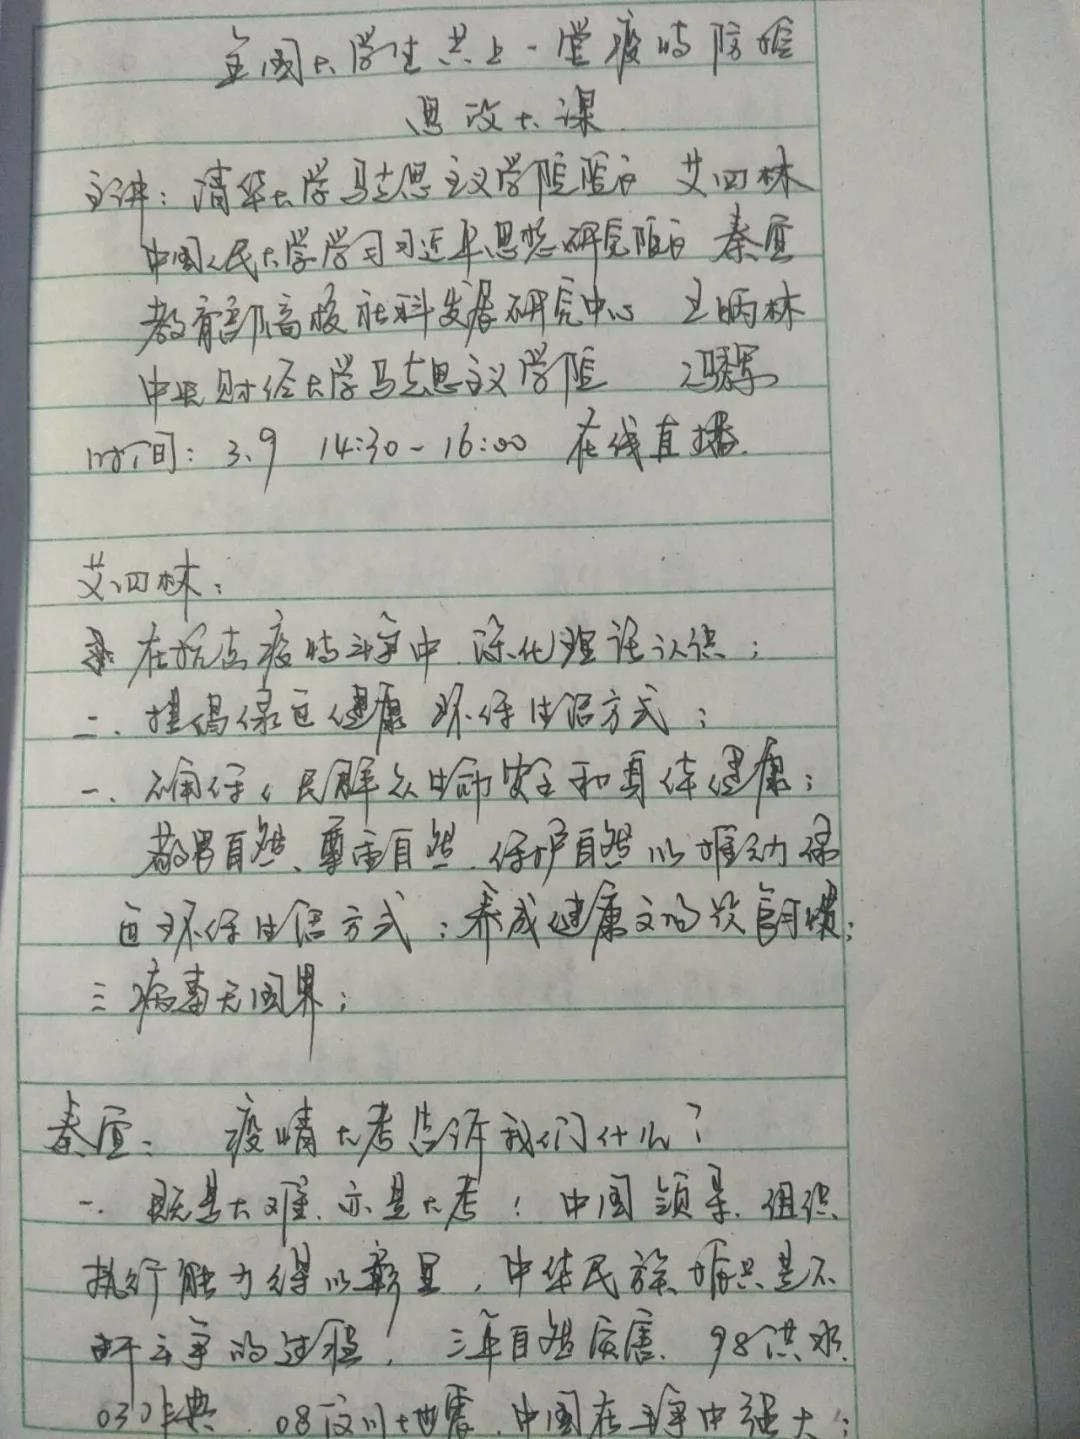 全国大学生共上一堂疫情防控
思政大课
主讲：清华大学马克思主义学院院长 艾四林
中国人民大学学习习近平思想研究院 秦宣
教育部高校社科发展研究中心 王炳林
中央财经大学马克思主义学院 冯秀军
时间：3.9 14:30-16:00 在线直播.
艾四林：
在抗击疫情斗争中，深化理论认识；
二、提倡绿色健康环保生活方式；
一、确保人民群众生命安全和身体健康；
敬畏自然、尊重自然、保护自然以推动绿
色环保生活方式；养成健康文明饮食习惯；
三病毒无国界；
秦宣： 疫情大考告诉我们什么？
一、既是大难，亦是大考！中国领导、组织
执行能力得以彰显，中华民族是不
斗争的过程，三年自然灾害、98洪水、
03非典、08汶川大地震，中国在斗争中强大；